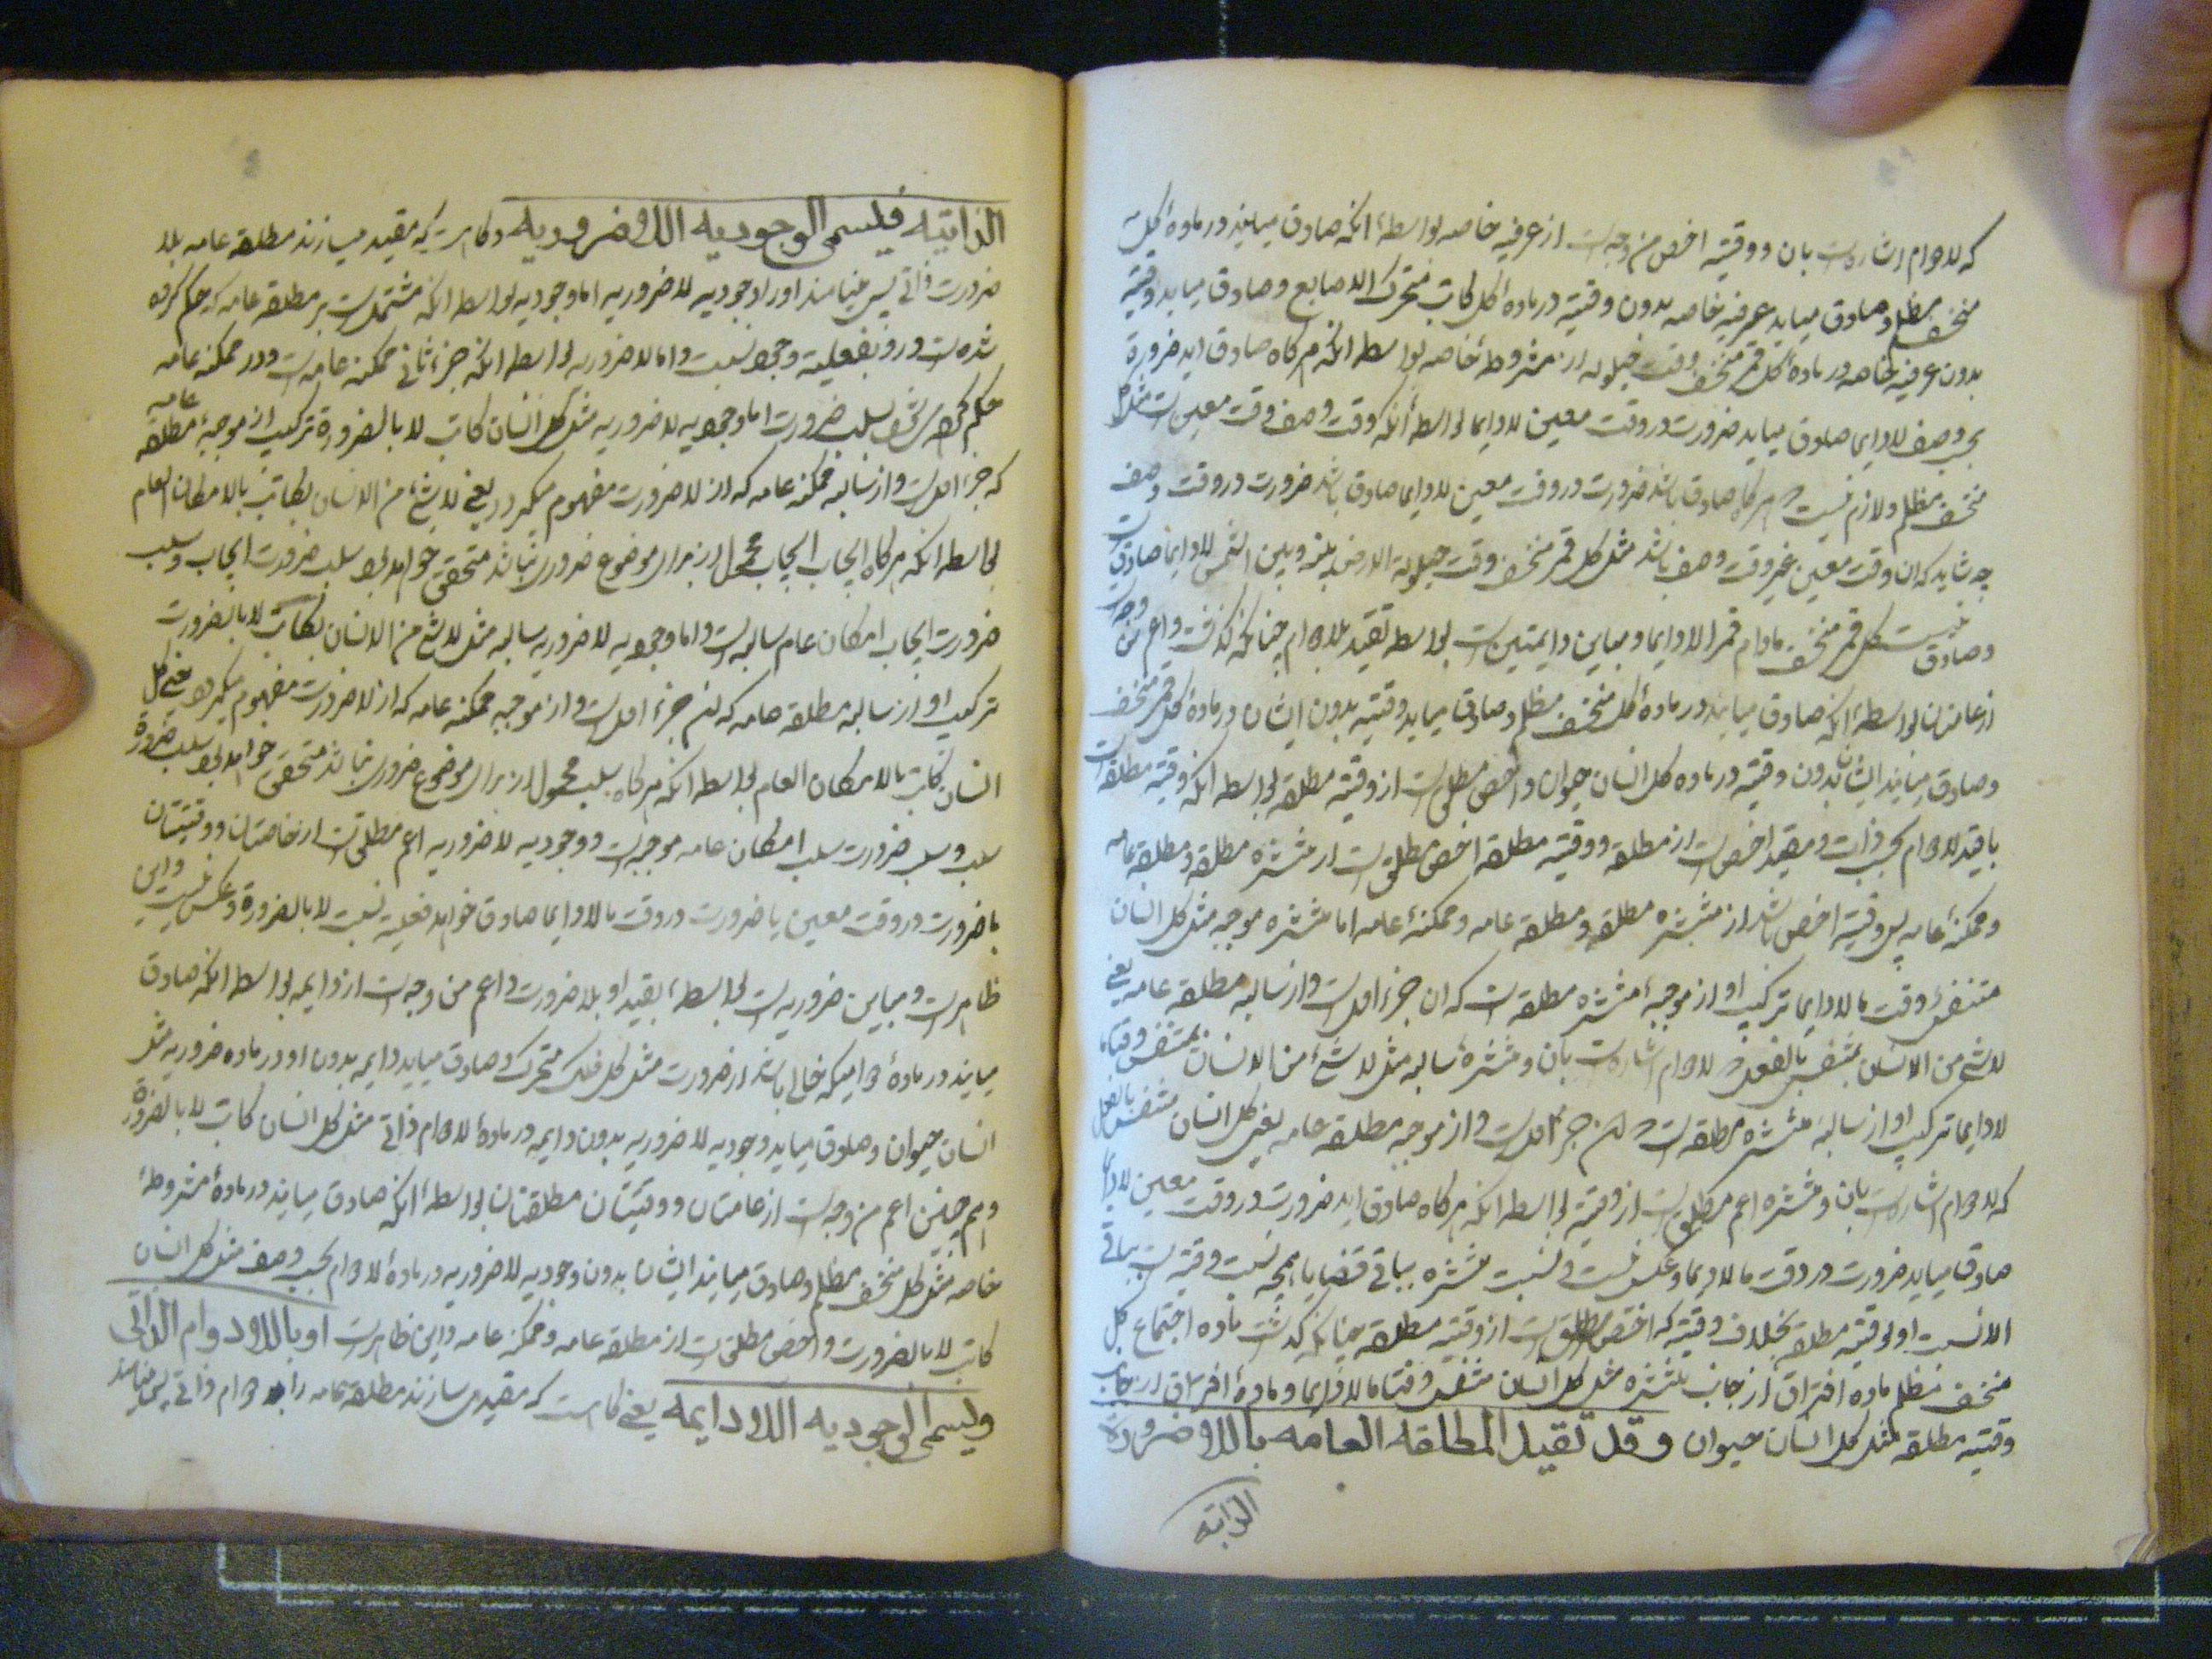 که لادوام اشارت بان و وقتیه اخص من وجه است از عرفیه خاصه بواسطه انکه صادق میایند در ماده کل
منخسف مظلم و صادق میاید عرفیه خاصه بدون وقتیه در ماده کل کاتب متحرک الاصابع و صادق میاید وقتیه
بدون عرفیه خاصه در ماده کل قمر منخسف وقت حیلوله از مشروطه خاصه بواسطه انکه هرکاه صادق اید ضرورة
بحسب وصف لادایما صادق میاید ضرورت در وقت معین لادایما بواسطه انکه وقت وصف وقت معین است مثل کل
منخسف مظلم و لازم نیست هرکاه صادق باشد ضرورت در وقت معین لادایما صادق باشد ضرورت در وقت وصف
چه شاید که ان وقت معین غیر وقت وصف باشد مثل کل قمر منخسف وقت حیلولة الارض بینه و بین الشمس لادایما صادق است
و صادق نیست کل قمر منخسف مادام قمرا لادایما و مباین دایمتین است بواسطه تقید بلادوام چنانکه کذشت و اعم من وجه است
از عامتان بواسطه انکه صادق میایند در ماده کل منخسف مظلم و صادق میاید وقتیه بدون ایشان در ماده کل قمر منخسف
و صادق میایند ایشان بدون وقتیه در ماده کل انسان حیوان و اخص مطلق است از وقتیه مطلقه بواسطه انکه وقتیه مطلقه است
با قید لادوام بحسب ذات و مقید اخص است از مطلقه و وقتیه مطلقه اخص مطلق است از منتشره مطلقه و مطلقه عامه
و ممکنه عامه پس وقتیه اخص باشد از منتشره مطلقه و مطلقه عامه و ممکنه عامه اما منتشره موجبه مثل کل انسان
متنفس وقت ما لادایما ترکیب او از موجبه منتشره مطلقه است که ان جزء اول است و از سالبه مطلقه عامه یعنی
لا شئ من الانسان بمتنفس بالفعل که لادوام اشارت بان و منتشره سالبه مثل لا شئ من الانسان بمتنفس وقتا ما
لادایما ترکیب او از سالبه منتشره مطلقه است که ان جزء اول است و از موجبه مطلقه عامه یعنی کل انسان متنفس بالفعل
که لادوام اشارت بان و منتشره اعم مطلق است از وقتیه بواسطه انکه هرکاه صادق اید ضرورت در وقت معین لادایما
صادق میاید ضرورت در وقت ما لادایما و عکس نیست و نسبت منتشره بباقی قضایا همچه نسبت وقتیه است بباقی
الا نسبت او بوقتیه مطلقه بخلاف وقتیه که اخص مطلق است از وقتیه مطلقه چنانکه کذشت ماده اجتماع کل
منخسف مظلم ماده افتراق از جانب منتشره مثل کل انسان متنفس وقتا ما لادایما و ماده افتراق از جانب
وقتیه مطلقه مثل کل انسان حیوان و قد تقید المطلقه العامه باللاضرورة
الذاتیه
الذاتیه فیسمی الوجودیه اللاضروریه و کاهست که مقید میسازند مطلقه عامه بلا
ضرورت ذاتی پس مینامند او را وجودیه لاضروریه اما وجودیه بواسطه انکه مشتمل است بر مطلقه عامه که حکم کرده
شده است در و بفعلیه و وجود نسبت و اما لاضروریه بواسطه انکه جزء ثانی ممکنه عامه است و در ممکنه عامه
حکم کرده میشود بسلب ضرورت اما وجودیه لاضروریه مثل کل انسان کاتب لا بالضرورة ترکیب از موجبه مطلقه عامه
که جزء اول است و از سالبه ممکنه عامه که از لاضرورت مفهوم میکردد یعنی لا شئ من الانسان بکاتب بالامکان العام
بواسطه انکه هرکاه ایجاب محمول از برای موضوع ضروری نباشد متحقق خواهد بود سلب ضرورت ایجاب و سلب
ضرورت ایجاب امکان عام سالبه است و اما وجودیه لاضروریه سالبه مثل لا شئ من الانسان بکاتب لا بالضرورت
ترکیب او از سالبه مطلقه عامه که ان جزء اول است و از موجبه ممکنه عامه که از لاضرورت مفهوم میکردد یعنی کل
انسان کاتب بالامکان العام بواسطه انکه هرکاه سلب محمول از برای موضوع ضروری نباشد متحقق خواهد بود سلب ضرورة
سلب و سلب ضرورت سلب امکان عامه موجبه است و وجودیه لاضروریه اعم مطلق است از خاصتان و وقتیتان
با ضرورت در وقت معین یا ضرورت در وقت ما لادایما صادق خواهد فعلیه نسبت لا بالضرورة و عکس نیست و این
ظاهر است و مباین ضروریه است بواسطه تقید او بلاضرورت و اعم من وجه است از دایمه بواسطه انکه صادق
میایند در ماده دوامیکه خالی باشد از ضرورت مثل کل فلک متحرک و صادق میاید دایمه بدون او در ماده ضروریه مثل
انسان حیوان و صادق میاید وجودیه لاضروریه بدون دایمه در ماده لادوام ذاتی مثل کل انسان کاتب لا بالضرورة
و همچنین اعم من وجه است از عامتان و وقتیتان مطلقتان بواسطه انکه صادق میایند در ماده مشروطه
خاصه مثل کل منخسف مظلم و صادق میایند ایشان بدون وجودیه لاضروریه در ماده لادوام بحسب وصف مثل کل انسان
کاتب لا بالضرورت و اخص مطلق است از مطلقه عامه و ممکنه عامه و این ظاهر است او باللادوام الذاتی
ویسمی الوجودیه اللادایمه یعنی کاهست که مقید میسازند مطلقه عامه را بلادوام ذاتی پس مینامند